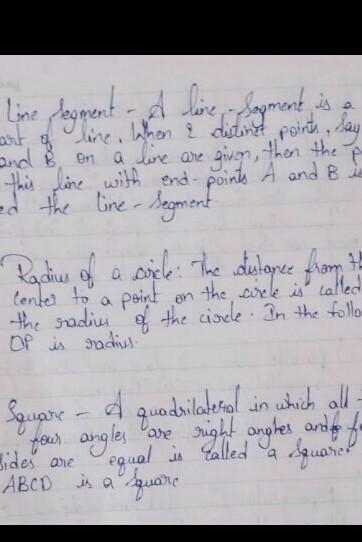 Line Segment - A line-Segment is a
art of line. When 2 distinct points, Say
and B on a line are given, then the p
this line with end-points A and B is
ed the line-Segment
Radius of a circle: The distance from th
center to a point on the circle is called
the radius of the circle. In the follo
OP is radius.
Square - A quadrilateral in which all
four angles are right angles and fo
sides are equal is called a Square.
ABCD is a Square